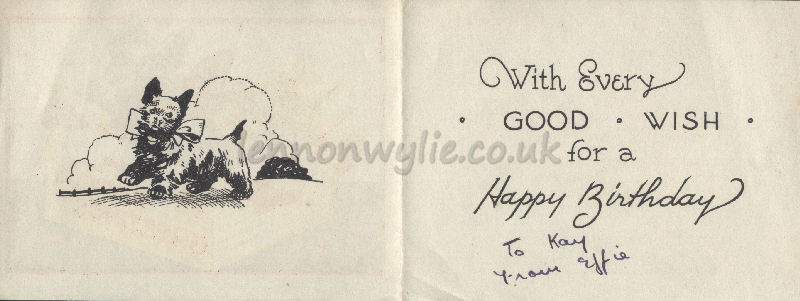 With Every
• GOOD • WISH •
for a
Happy Birthday
To Kay
From Effie
lennonwylie.co.uk